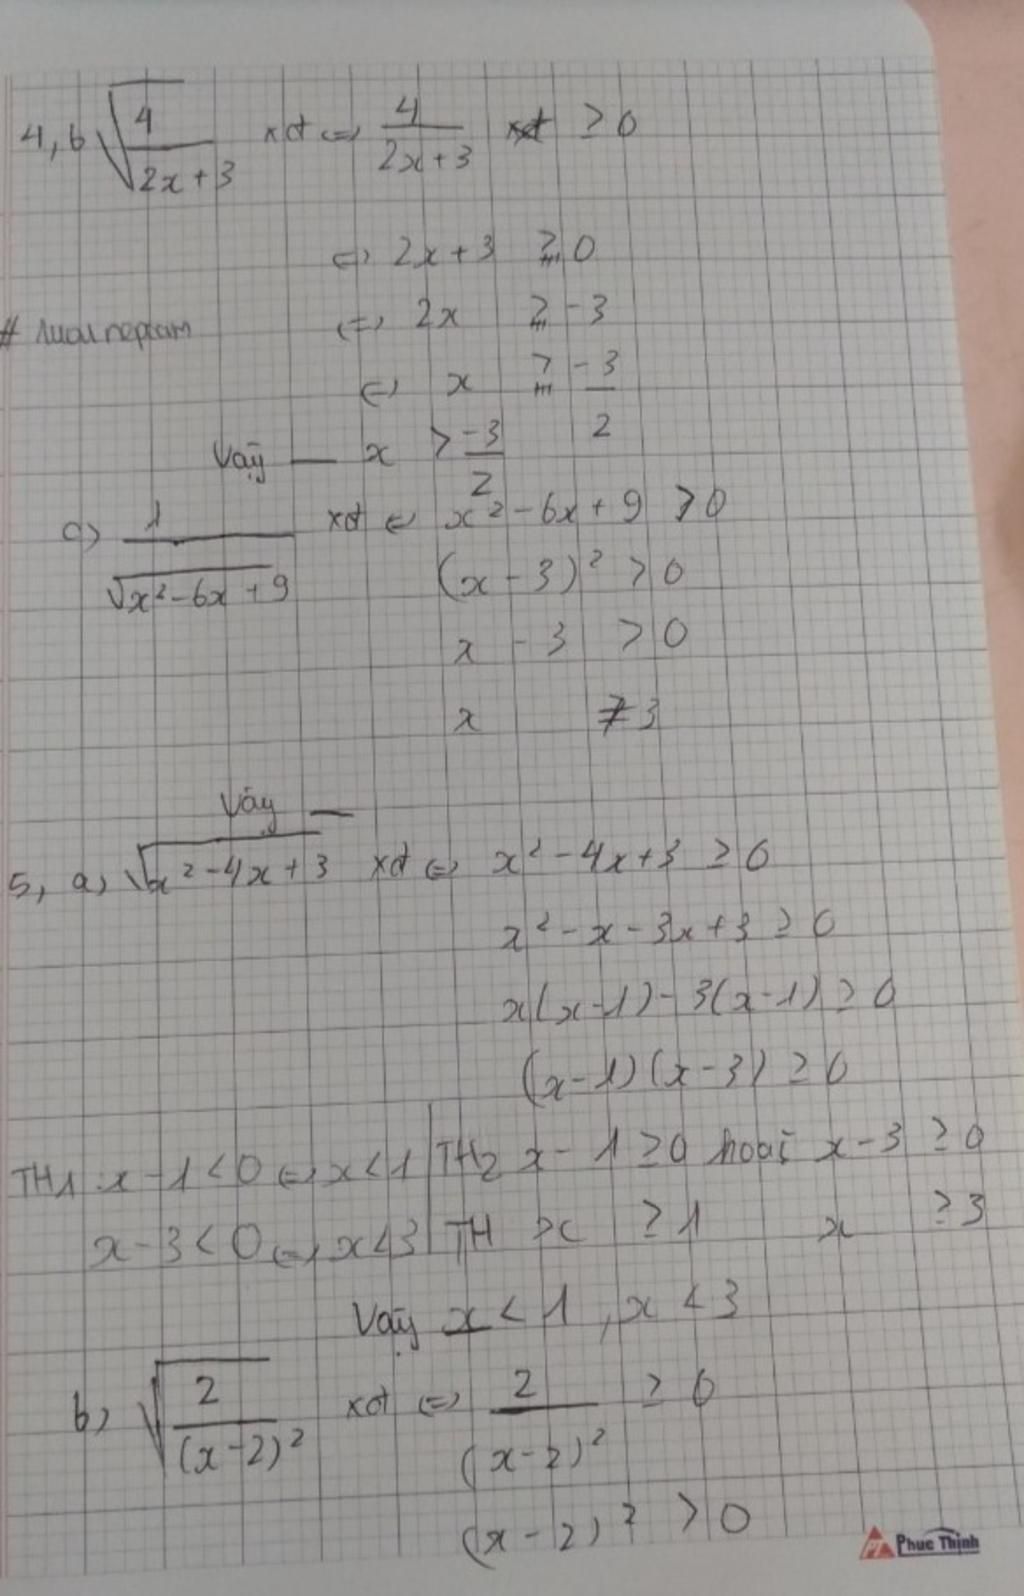 4, b √(4/(2x+3)) xđ ⇔ 4/(2x+3) ≥ 0
⇔ 2x+3 ≥ 0
⇔ 2x ≥ -3
⇔ x ≥ -3/2
Vậy — x > -3/2
c) 1/√(x²-6x+9) xđ ⇔ x²-6x+9 > 0
(x-3)² > 0
x - 3 > 0
x ≠ 3
Vây —
5, a, √(x²-4x+3) xđ ⇔ x²-4x+3 ≥ 0
x²-x-3x+3 ≥ 0
x(x-1)-3(x-1) ≥ 0
(x-1)(x-3) ≥ 0
TH1 x-1<0 ⇔ x<1 | TH2 x-1 ≥0 hoặc x-3 ≥0
x-3<0 ⇔ x<3 | TH x ≥1 x ≥3
Vậy x < 1, x < 3
b) √(2/(x-2)²) xđ ⇔ 2/(x-2)² ≥ 0
(x-2)² > 0
PT Phuc Thinh